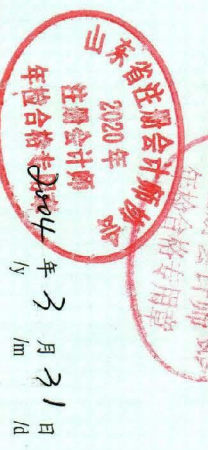 山东省注册会计师协会
2020年
注册会计师
年检合格专用章
年检合格专用章
2004 年 3 月 31 日
/y /m /d